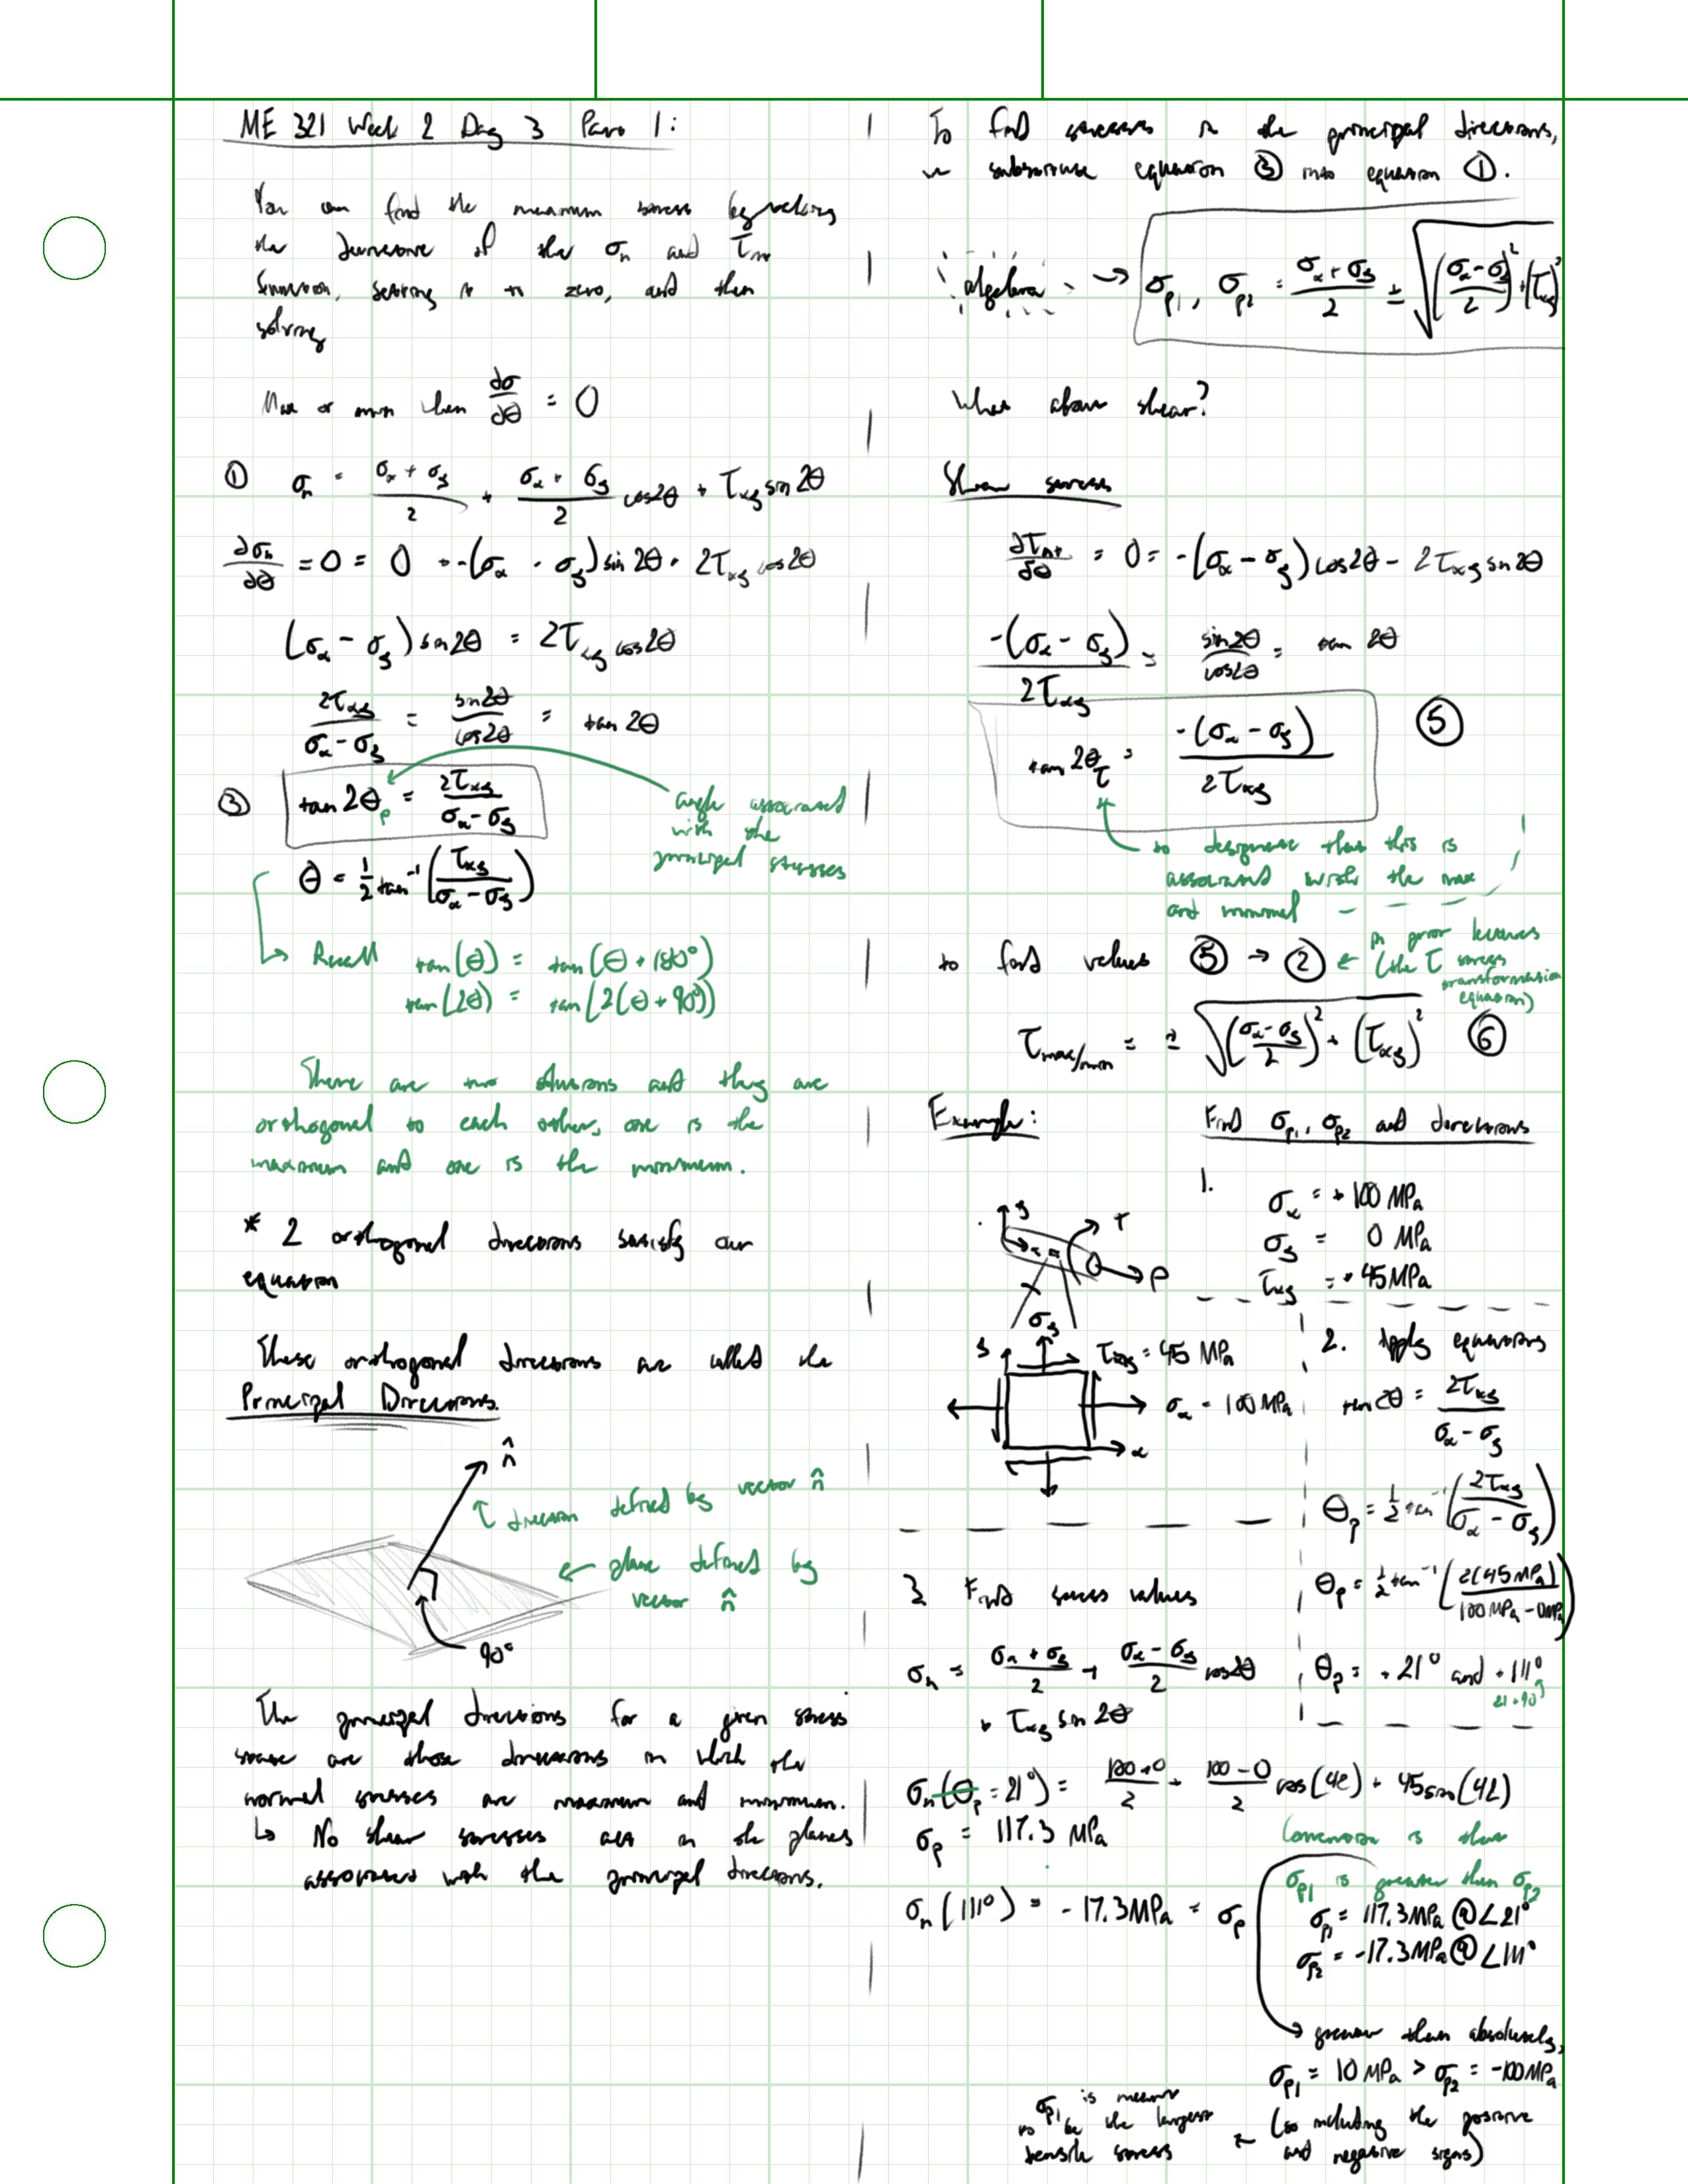 ME 321 Week 2 Day 3 Part 1:
You can find the maximum stress by taking
the derivative of the σn and τnt
function, setting it to zero, and then
solving
Max or min when dσ/dθ = 0
① σn = (σx + σy)/2 + (σx + σy)/2 cos2θ + τxy sin2θ
∂σn/∂θ = 0 = 0 + -(σx - σy) sin 2θ + 2τxy cos2θ
(σx - σy) sin2θ = 2τxy cos2θ
2τxy/(σx - σy) = sin2θ/cos2θ = tan 2θ
③ tan 2θp = 2τxy/(σx - σy)
angle associated
with the
principal stresses
θ = 1/2 tan⁻¹(τxy/(σx - σy))
Recall tan(θ) = tan(θ + 180°)
tan(2θ) = tan(2(θ + 90°))
There are two solutions and they are
orthogonal to each other, one is the
maximum and one is the minimum.
* 2 orthogonal directions satisfy our
equation
These orthogonal directions are called the
Principal Directions.
n̂
direction defined by vector n̂
plane defined by
vector n̂
90°
The principal directions for a given stress
state are those directions in which the
normal stresses are maximum and minimum.
↳ No shear stresses act on the planes
associated with the principal directions.
To find stresses in the principal directions,
we substitute equation ③ into equation ①.
algebra → σp1, σp2 = (σx + σy)/2 ± √(((σx - σy)/2)² + (τxy)²)
What about shear?
Shear stresses
∂τnt/∂θ = 0 = -(σx - σy) cos2θ - 2τxy sin2θ
-(σx - σy)/2τxy = sin2θ/cos2θ = tan 2θ
tan 2θτ = -(σx - σy)/2τxy ⑤
to designate that this is
associated with the max
and minimal
to find values ⑤ → ② ← in prior lectures
(the τ stress
transformation
equation)
τmax/min = ± √(((σx - σy)/2)² + (τxy)²) ⑥
Example: Find σp1, σp2 and directions
1. σx = +100 MPa
σy = 0 MPa
τxy = +45 MPa
y
T
P
σy
y
τxy = 45 MPa
σx = 100 MPa
x
2. Apply equations
tan 2θ = 2τxy/(σx - σy)
θp = 1/2 tan⁻¹(2τxy/(σx - σy))
θp = 1/2 tan⁻¹(2(45 MPa)/(100 MPa - 0 MPa))
θp = +21° and +111°
21+90
3. Find stress values
σn = (σx + σy)/2 + (σx - σy)/2 cos2θ
+ τxy sin 2θ
σn(θp = 21°) = (100+0)/2 + (100-0)/2 cos(42) + 45sin(42)
σp = 117.3 MPa
σn(111°) = -17.3MPa = σp
Convention is that
σp1 is greater than σp2
σp1 = 117.3MPa @∠21°
σp2 = -17.3MPa@∠111°
greater than absolutely,
σp1 = 10 MPa > σp2 = -100MPa
(so including the positive
and negative signs)
← σp1 is meant
to be the largest
tensile stress